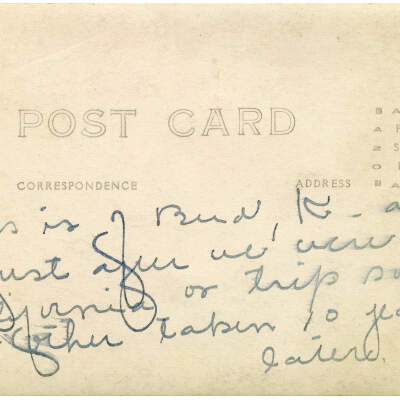 POST CARD
CORRESPONDENCE
ADDRESS
s is of Bud, K. a
ust after we were
ifornia or trip so
other taken 10 yea
later.